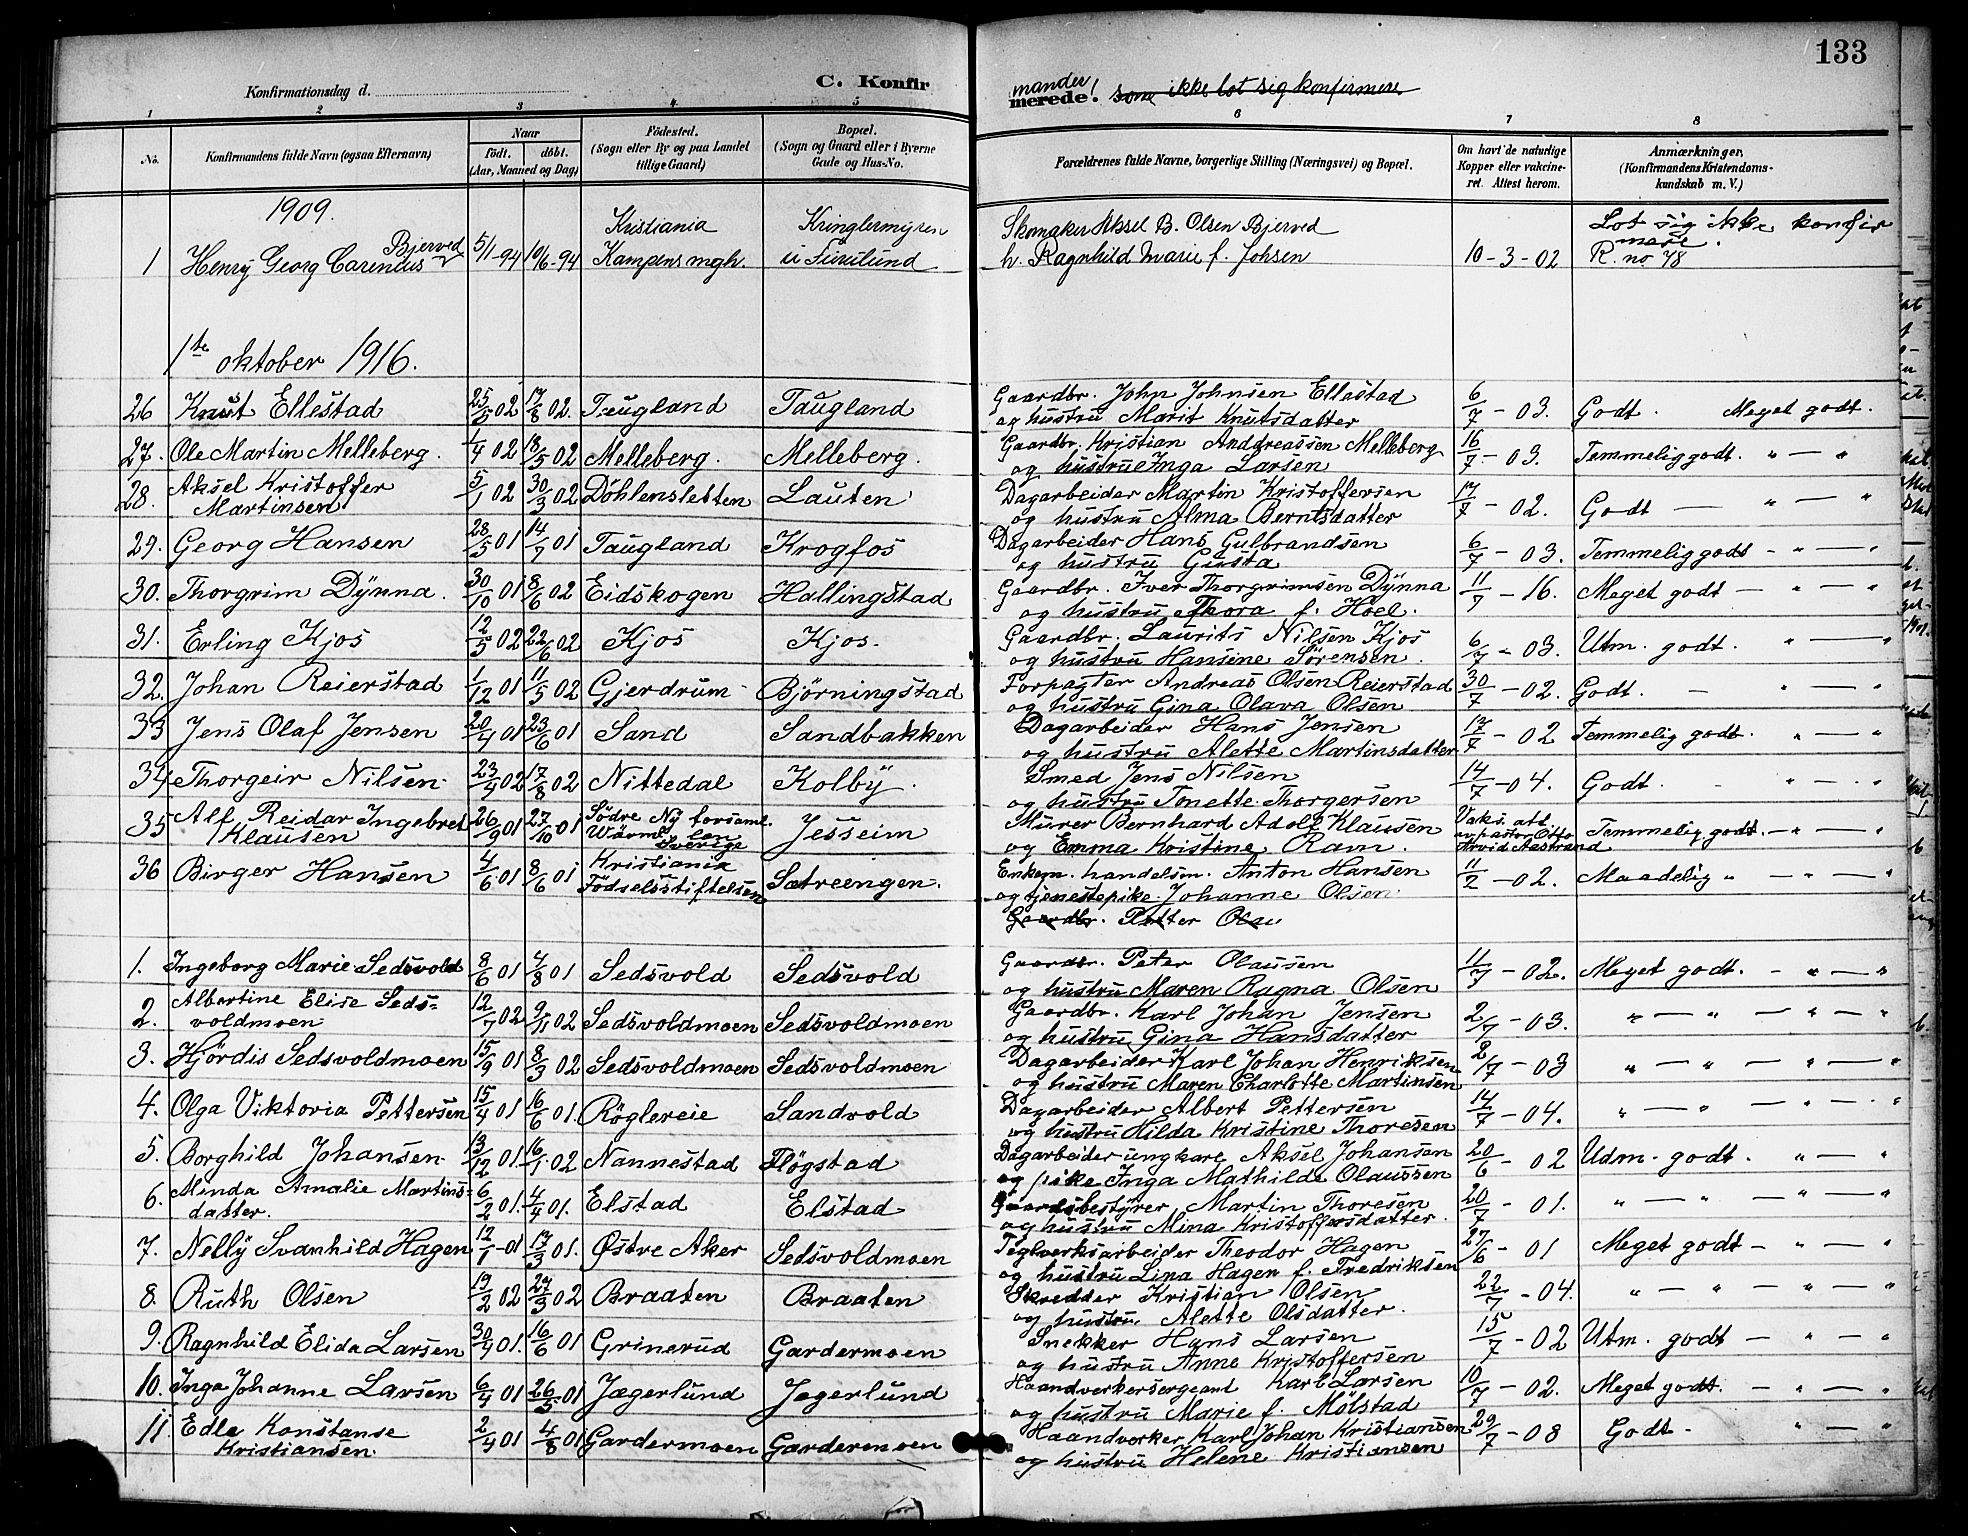 133
Konfirmationsdag d.
C. Konfir
mander
merede! som ikke lot sig konfirmere
1 2 3 4 5 6 7 8
No. Konfirmandens fulde Navn (ogsaa Efternavn) Naar födt. döbt. (Aar, Maaned og Dag) Födested. (Sogn eller By og paa Landet tillige Gaard) Bopæl. (Sogn og Gaard eller i Byerne Gade og Hus-No. Forældrenes fulde Navne, borgerlige Stilling (Næringsvei) og Bopæl. Om havt de naturlige Kopper eller vakcineret. Attest herom. Anmærkninger, (Konfirmandens Kristendomskundskab m. V.)
1909.
1 Henry Georg Carenius Bjerved 5/1-94 10/6-94 Kristiania Kampens mgh. Kringlermyren u Furulund Skomaker Aksel B. Olsen Bjerved
h. Ragnhild Marie f. Johsen 10-3-02 Lot sig ikke konfirmere. R. no 78
1te oktober 1916.
26 Knut Ellestad 25/5 02 17/8 02. Taugland Taugland Gaardbr. John Johnsen Ellestad
og hustru Marit Knutsdatter 6/7 - 03. Godt. Meget godt.
27. Ole Martin Melleberg. 1/4 02 18/5 02 Melleberg. Melleberg. Gaardbr. Kristian Anddreassen Melleberg
og hustru Inga Larsen 16/7 - 03. Temmelig godt. " — "
28. Aksel Kristoffer Martinsen 5/1 02 30/3 02 Döhlensletten Lauten Dagarbeider Martin Kristoffersen
og hustru Alma Berntsdatter 17/7 - 02. Godt — " — "
29. Georg Hansen 28/5 01 14/7 01 Taugland Krogfos Dagarbeider Hans Gulbrandsen
og hustru Gusta 6/7 - 03. Temmelig godt - " — "
30. Thorgrim Dÿnna. 30/10 01 8/6 02 Eidskogen Hallingstad Gaardbr. Iver Thorgrimsen Dÿnna
og hustru Thora f. Hoel. 11/7 - 16. Meget godt — " — "
31. Erling Kjos 12/5 02 22/6 02 Kjos Kjos. Gaardbr. Laurits Nilsen Kjos
og hustru Hansine Sörensen. 6/7 - 03. Utm. godt. " — "
32. Johan Reierstad 1/12 01 11/5 02 Gjerdrum Björningstad Forpagter Andreas Olsen Reierstad
og hustru Gina Olava Olsen 30/7 - 02. Godt. — " — "
33 Jens Olaf Jensen 20/4 01 23/6 01 Sand Sandbakken Dagarbeider Hans Jensen
og hustru Alette Martinsdatter 17/7 - 02 Temmelig godt. " — "
34 Thorgeir Nilsen. 23/4 02 17/8 02 Nittedal Kolbÿ. Smed Jens Nilsen
og hustru Tonette Thorgersen 14/7 - 04. Godt. - " — "
35 Alf Reidar Ingebret Klausen 26/9 01 27/10 01 Södre Ny forsaml. Wärmlen Sverige Jesseim Murer Bernhard Adolf Klausen
og Emma Kristine Ram. Vaks. att. av pastor Otto Arvid Aastrand Temmelig godt. — " — "
36 Birger Hansen 4/6 01 8/6 01 Kristiania Födselsstiftelsen Sætreengen. Enkem. handelsm. Anton Hansen
og tjenestepike Johanne Olsen 11/2 - 02. Maadelig " — " — "
Gaardbr. Petter Olau
1. Ingeborg Marie Sedsvold 8/6 01 4/8 01 Sedsvold Sedsvold Gaardbr. Peter Olausen
og hustru Maren Ragna Olsen 11/7 - 02. Meget godt. - " — "
2. Albertine Elise Sedsvoldmoen 12/7 02 9/11 02 Sedsvoldmoen Sedsvoldmoen Gaardbr. Karl Johan Jensen
og hustru Gina Hansdatter 2/7 - 03. " — " — " — "
3. Hjördis Sedsvoldmoen 15/9 01 8/3 02 Sedsvoldmoen Sedsvoldmoen Dagarbeider Karl Johan Henriksen
og hustru Maren Charlotte Martinsen 2/7 - 03 " — " — " — "
4. Olga Viktoria Pettersen 15/4 01 16/6 01. Röglereie Sandvold Dagarbeider Albert Pettersen
og hustru Hilda Kristine Thoresen 14/7 - 04. " — " — " — "
5. Borghild Johansen 13/12 01. 16/1 02 Nannestad Flögstad Dagarbeider ungkarl Aksel Johansen
og pike Inga Mathilde Olaussen 20/6 - 02 Udm. godt. " — "
6. Minda Amalie Martinsdatter. 6/2 01. 4/4 01. Elstad Elstad Gaardsbestÿrer Martin Thoresen
og hustru Mina Kristoffersdatter. 20/7 - 01. " — " — " — "
7. Nellÿ Svanhild Hagen 12/1 - 01 17/3 01. Østre Aker Sedsvoldmoen Teglverksarbeider Theodor Hagen
og hustru Lina Hagen f. Fredriksen 27/6 - 01 Meget godt — " — "
8. Ruth Olsen 19/2 02 29/3 02 Braaten Braaten Skredder Kristian Olsen
og hustru Alette Olsdatter. 22/7 - 04. " — " " — "
9. Ragnhild Elida Larsen 30/4 01. 16/6 01 Grinerud Gardermoen Snekker Hans Larsen
og hustru Anne Kristoffersen 15/7 - 02 Utm. godt — " — "
10. Inga Johanne Larsen 6/4 01 26/5 01 Jægerlund Jegerlund Haandverkersergeant Karl Larsen
og hustru Marie f. Mölstad 10/7 - 02. Meget godt. — " — "
11. Edle Konstanse Kristiansen 2/4 01 4/8 01 Gardermoen Gardermoen Haandverker Karl Johan Kristiansen
og hustru Helene Kristiansen 29/7 - 08 Godt - " — "